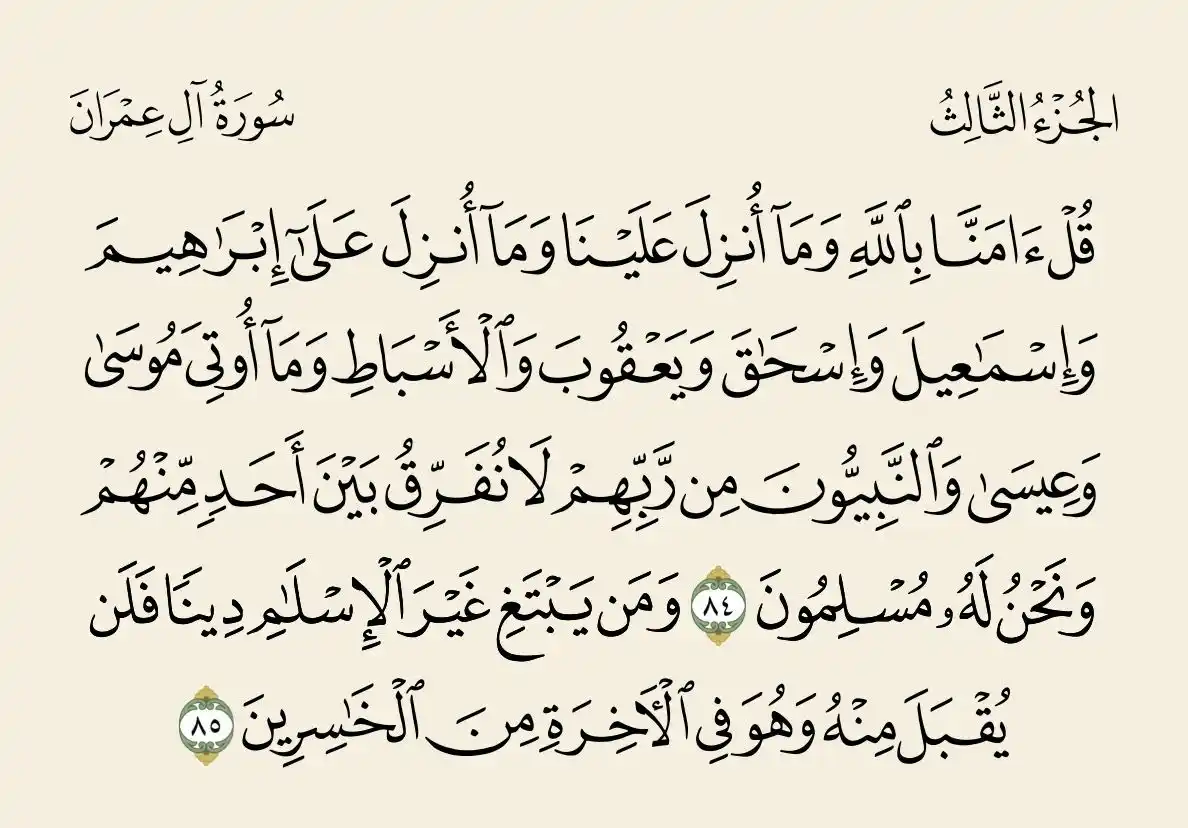 الجُزْءُ الثَّالِثُ
سُورَةُ آلِ عِمْرَانَ
قُلۡ ءَامَنَّا بِٱللَّهِ وَمَآ أُنزِلَ عَلَيۡنَا وَمَآ أُنزِلَ عَلَىٰٓ إِبۡرَٰهِيمَ
وَإِسۡمَٰعِيلَ وَإِسۡحَٰقَ وَيَعۡقُوبَ وَٱلۡأَسۡبَاطِ وَمَآ أُوتِيَ مُوسَىٰ
وَعِيسَىٰ وَٱلنَّبِيُّونَ مِن رَّبِّهِمۡ لَا نُفَرِّقُ بَيۡنَ أَحَدٖ مِّنۡهُمۡ
وَنَحۡنُ لَهُۥ مُسۡلِمُونَ ٨٤ وَمَن يَبۡتَغِ غَيۡرَ ٱلۡإِسۡلَٰمِ دِينٗا فَلَن
يُقۡبَلَ مِنۡهُ وَهُوَ فِي ٱلۡأٓخِرَةِ مِنَ ٱلۡخَٰسِرِينَ ٨٥